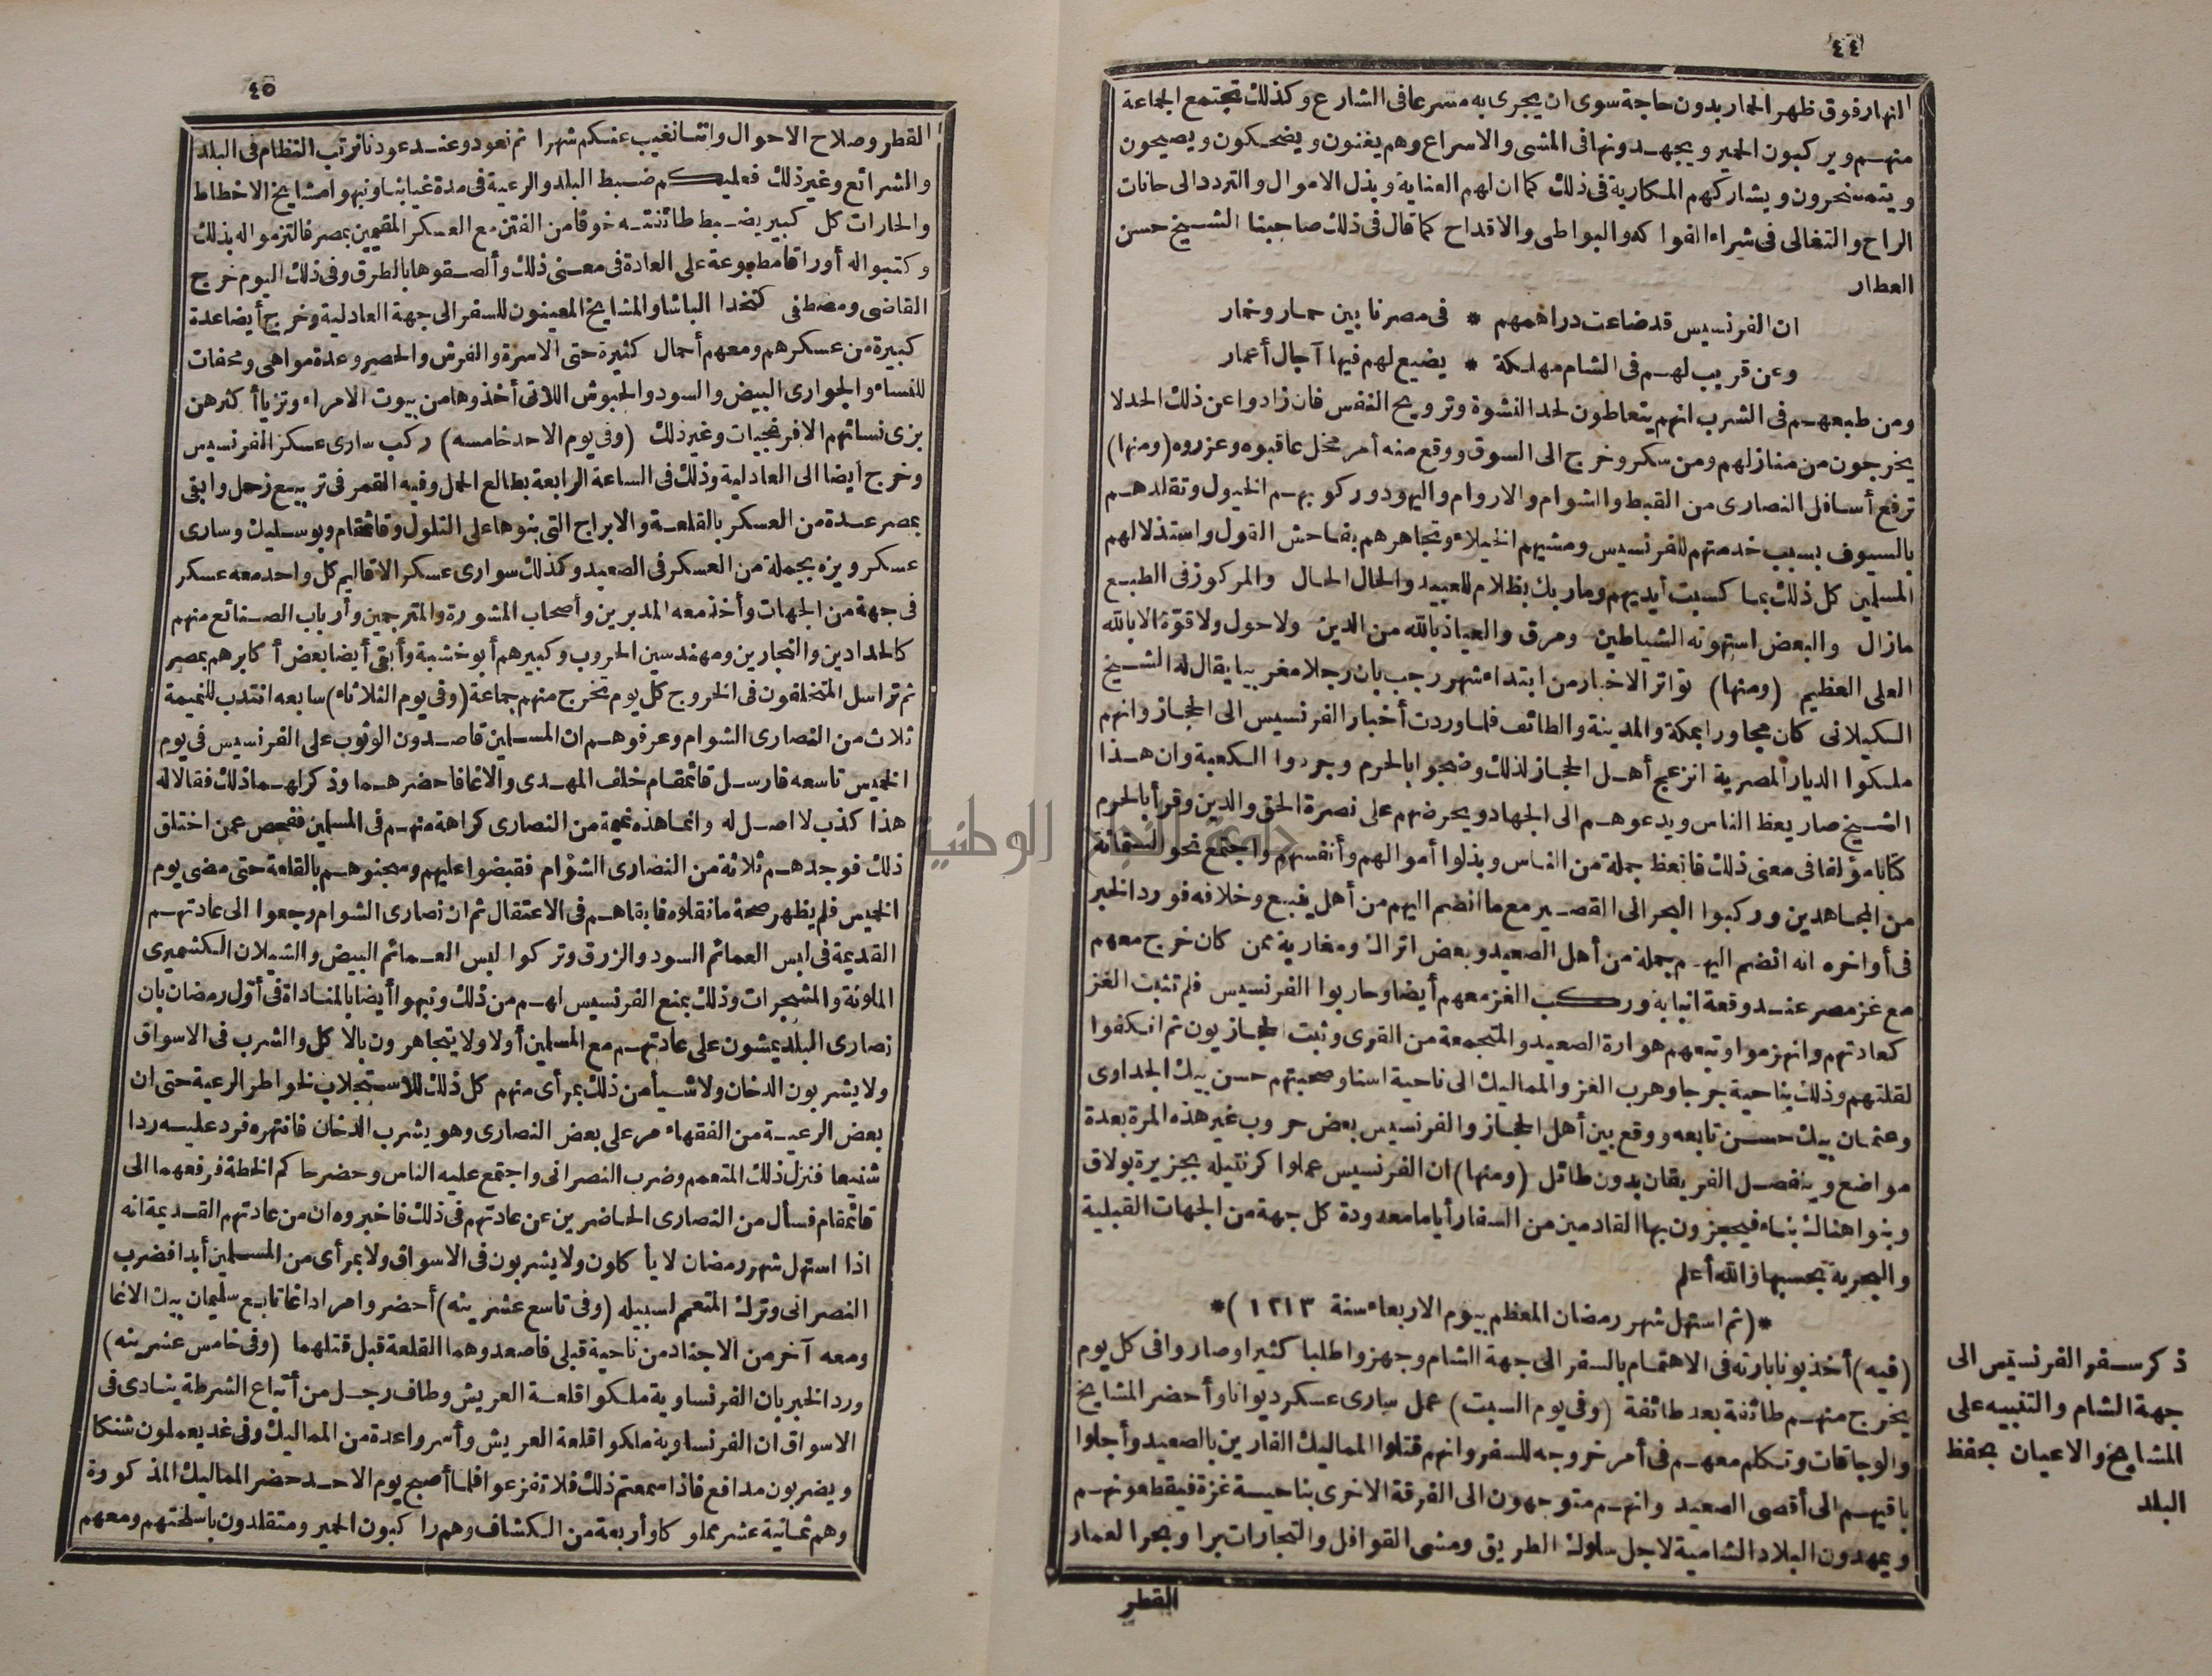 ٤٤
النهار فوق ظهر الحمار بدون حاجة سوى ان يجرى به مسرعا فى الشارع وكذلك تجتمع الجماعة
منهم ويركبون الحمير ويجهدونها فى المشى والاسراع وهم يغنون ويضحكون ويصيحون
ويتمسخرون ويشاركهم المكارية فى ذلك كما ان لهم العناية وبذل الاموال والتردد الى حانات
الراح والتغالى فى شراء الفواكه والبواطى والاقداح كما قال فى ذلك صاحبنا الشيخ حسن
العطار
ان الفرنسيس قد ضاعت دراهمهم * فى مصرنا بين حمار وخمار
وعن قريب لهم فى الشام مهلكة * يضيع لهم فيها آجال أعمار
ومن طبعهم فى الشرب انهم يتعاطون لحد النشوة وترويح النفس فان زادوا عن ذلك الحد لا
يخرجون من منازلهم ومن سكر وخرج الى السوق ووقع منه أمر مخل عاقبوه وعزروه (ومنها)
ترفع أسافل النصارى من القبط والشوام والاروام واليهود وركوبهم الخيول وتقلدهم
بالسيوف بسبب خدمتهم للفرنسيس ومشيهم الخيلاء وتجاهرهم بفاحش القول واستذلالهم
المسلمين كل ذلك بما كسبت أيديهم وما ربك بظلام للعبيد والحال الحال والمركوز فى الطبع
مازال والبعض استهوته الشياطين ومرق والعياذ بالله من الدين ولاحول ولا قوّة الا بالله
العلى العظيم (ومنها) تواتر الاخبار من ابتداء شهر رجب بان رجلا مغربيا يقال له الشيخ
الكيلانى كان مجاورا بمكة والمدينة والطائف فلما وردت أخبار الفرنسيس الى الحجاز وانهم
ملكوا الديار المصرية انزعج أهل الحجاز لذلك وضجوا بالحرم وجردوا الكعبة وان هذا
الشيخ صار يعظ الناس ويدعوهم الى الجهاد ويحرضهم على نصرة الحق والدين وقرأ بالحرم
كتابا مؤلفا فى معنى ذلك فاتعظ جملة من الناس وبذلوا أموالهم وأنفسهم واجتمع نحو الستمائة
من المجاهدين وركبوا البحر الى القصير مع ما انضم اليهم من أهل ينبع وخلافه فورد الخبر
فى أواخره انه انضم اليهم جملة من أهل الصعيد وبعض اتراك ومغاربة ممن كان خرج معهم
مع غز مصر عند وقعة انبابة وركب الغز معهم أيضا وحاربوا الفرنسيس فلم تثبت الغز
كعادتهم وانهزموا وتبعهم هوارة الصعيد والمتجمعة من القرى وثبت الحجازيون ثم انكفوا
لقلتهم وذلك بناحية جرجا وهرب الغز والمماليك الى ناحية اسنا وصحبتهم حسن بيك الجداوى
وعثمان بيك حسن تابعه ووقع بين أهل الحجاز والفرنسيس بعض حروب غير هذه المرة بعدة
مواضع وينفصل الفريقان بدون طائل (ومنها) ان الفرنسيس عملوا كرنتيله بجزيرة بولاق
وبنوا هناك بناء فيحجزون بها القادمين من السفار أياما معدودة كل جهة من الجهات القبلية
والبحرية بحسبها والله أعلم
*(ثم استهل شهر رمضان المعظم بيوم الاربعاء سنة ١٢١٣)*
(فيه) أخذ بونابارته فى الاهتمام بالسفر الى جهة الشام وجهزوا طلبا كثيرا وصاروا فى كل يوم
يخرج منهم طائفة بعد طائفة (وفى يوم السبت) عمل سارى عسكر ديوانا وأحضر المشايخ
والوجاقات وتكلم معهم فى أمر خروجه للسفر وانهم قتلوا المماليك الفارين بالصعيد وأجلوا
باقيهم الى أقصى الصعيد وانهم متوجهون الى الفرقة الاخرى بناحية غزة فيقطعونهم
ويمهدون البلاد الشامية لاجل سلوك الطريق ومشى القوافل والتجارات برا وبحرا لعمار
القطر
ذكر سفر الفرنسيس الى
جهة الشام والتنبيه على
المشايخ والاعيان بحفظ
البلد
٤٥
القطر وصلاح الاحوال واننا نغيب عنكم شهرا ثم نعود وعند عودنا نرتب النظام فى البلد
والشرائع وغير ذلك فعليكم ضبط البلد والرعية فى مدة غيابنا ونبهوا مشايخ الاخطاط
والحارات كل كبير يضبط طائفته خوفا من الفتن مع العسكر المقيمين بمصر فالتزموا له بذلك
وكتبوا له أوراقا مطبوعة على العادة فى معنى ذلك وألصقوها بالطرق وفى ذلك اليوم خرج
القاضى ومصطفى كتخدا الباشا والمشايخ المعينون للسفر الى جهة العادلية وخرج أيضا عدة
كبيرة من عسكرهم ومعهم أحمال كثيرة حتى الاسرة والفرش والحصر وعدة مواهى ومحفات
للنساء والجوارى البيض والسود والحبوش اللاتى أخذوها من بيوت الامراء وتزيا أكثرهن
بزى نسائهم الافرنجيات وغير ذلك (وفى يوم الاحد خامسه) ركب سارى عسكر الفرنسيس
وخرج أيضا الى العادلية وذلك فى الساعة الرابعة بطالع الحمل وفيه القمر فى تربيع زحل وابقى
بمصر عدة من العسكر بالقلعة والابراج التى بنوها على التلول وقائمقام وبوسليك وسارى
عسكر ويزه بجملة من العسكر فى الصعيد وكذلك سوارى عسكر الاقاليم كل واحد معه عسكر
فى جهة من الجهات وأخذ معه المدبرين وأصحاب المشورة والمترجمين وأرباب الصنائع منهم
كالحدادين والنجارين ومهندسين الحروب وكبيرهم أبو خشبة وأبقى أيضا بعض أكابرهم بمصر
ثم تراسل المتخلفون فى الخروج كل يوم يخرج منهم جماعة (وفى يوم الثلاثاء) سابعه انتدب للنميمة
ثلاث من النصارى الشوام وعرفوهم ان المسلمين قاصدون الوثوب على الفرنسيس فى يوم
الخميس تاسعه فارسل قائمقام خلف المهدى والاغا فاحضرهما وذكر لهما ذلك فقالا له
هذا كذب لا اصل له وانما هذه نميمة من النصارى كراهة منهم فى المسلمين ففحص عمن اختلق
ذلك فوجدهم ثلاثة من النصارى الشوام فقبضوا عليهم وسجنوهم بالقلعة حتى مضى يوم
الخميس فلم يظهر صحة ما نقلوه فابقاهم فى الاعتقال ثم ان نصارى الشوام رجعوا الى عادتهم
القديمة فى لبس العمائم السود والزرق وتركوا لبس العمائم البيض والشيلان الكشميرى
الملونة والمشجرات وذلك بمنع الفرنسيس لهم من ذلك ونبهوا أيضا بالمناداة فى أوّل رمضان بان
نصارى البلد يمشون على عادتهم مع المسلمين أولا ولا يتجاهرون بالاكل والشرب فى الاسواق
ولا يشربون الدخان ولا شيأ من ذلك بمرأى منهم كل ذلك للاستجلاب لخواطر الرعية حتى ان
بعض الرعية من الفقهاء مر على بعض النصارى وهو يشرب الدخان فانتهره فرد عليه ردا
شنيعا فنزل ذلك المتعمم وضرب النصرانى واجتمع عليه الناس وحضر حاكم الخطة فرفعهما الى
قائمقام فسأل من النصارى الحاضرين عن عادتهم فى ذلك فاخبروه ان من عادتهم القديمة انه
اذا استهل شهر رمضان لا يأكلون ولا يشربون فى الاسواق ولا بمرأى من المسلمين أبدا فضرب
النصرانى وترك المتعمم لسبيله (وفى تاسع عشرينه) أحضروا مراد اغا تابع سليمان بيك الاغا
ومعه آخر من الاجناد من ناحية قبلى فاصعدوهما القلعة قبل قتلهما (وفى خامس عشرينه)
ورد الخبر بان الفرنساوية ملكوا قلعة العريش وطاف رجل من أتباع الشرطة ينادى فى
الاسواق ان الفرنساوية ملكوا قلعة العريش وأسروا عدة من المماليك وفى غد يعملون شنكا
ويضربون مدافع فاذا سمعتم ذلك فلا تفزعوا فلما أصبح يوم الاحد حضر المماليك المذكورة
وهم ثمانية عشر مملوكا وأربعة من الكشاف وهم راكبون الحمير ومتقلدون باسلحتهم ومعهم